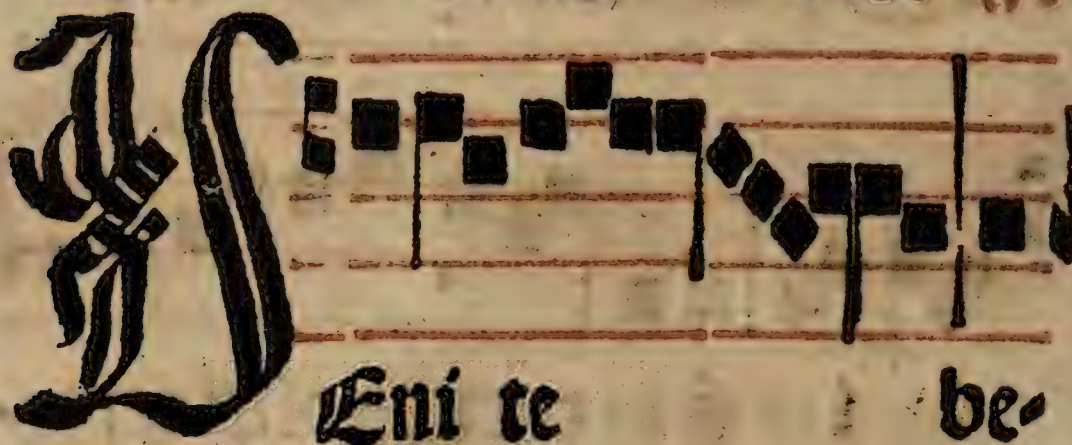 VEni te be-